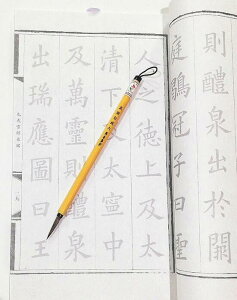 則醴泉出於闕
庭鶡冠子曰聖
人之德上及太
清下及太寧中
及萬靈則醴泉
出瑞應圖曰王